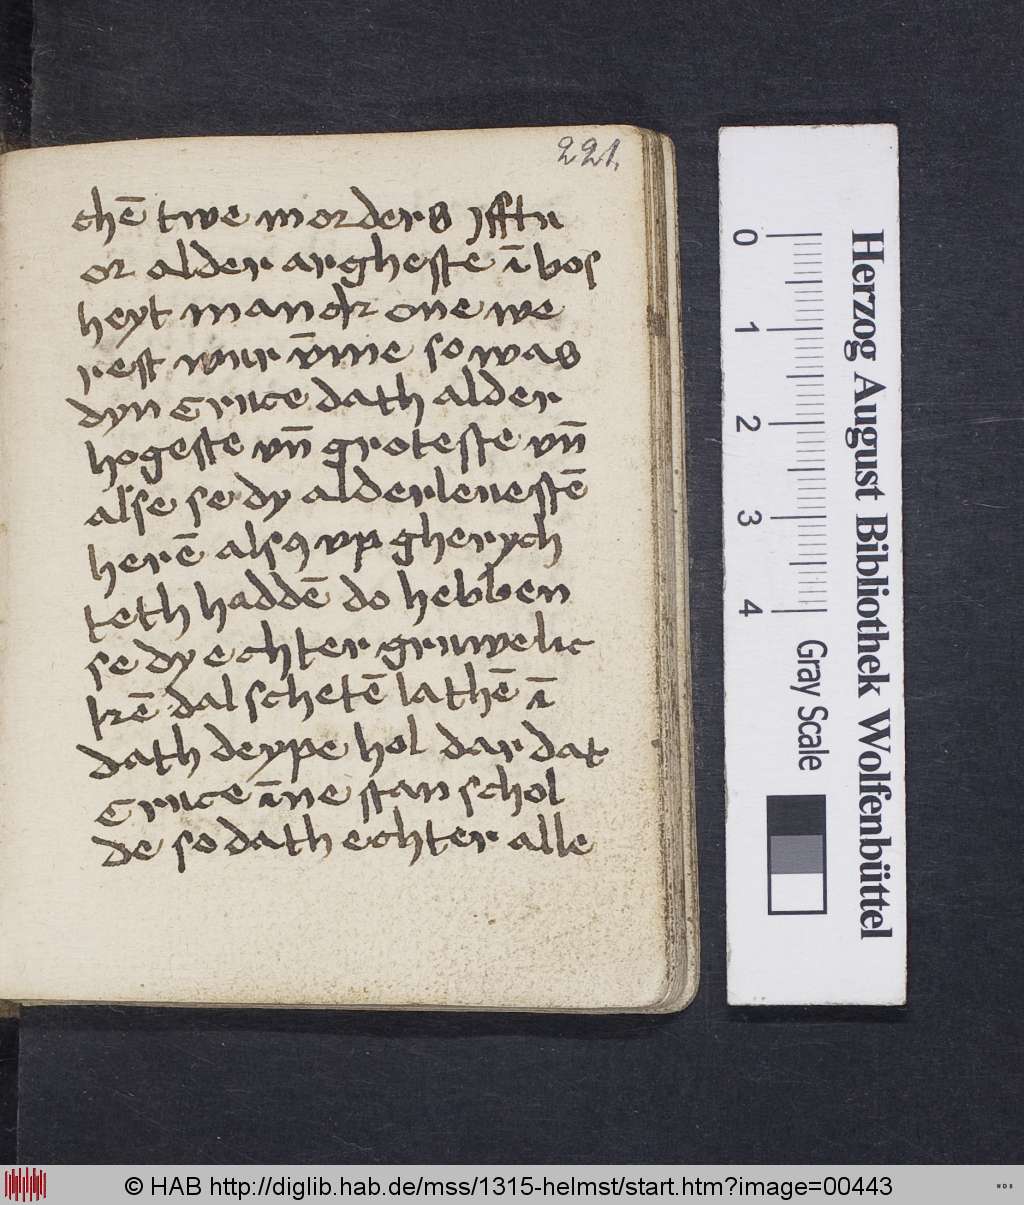 221.
chē twe morders Jfftu
or alder argheste ī bos
heyt manck one we
rest wur v̄me so was
dyn cruce dath alder
hogeste vn̄ groteste vn̄
alse se dy alderleuestē
herē alsꝯ vp gherych
teth haddē do hebben
se dy echter gruwelic
kē dal schetē lathē ī
dath deype hol dar dat
cruce īne stan schol
de so dath echter alle
Herzog August Bibliothek Wolfenbüttel
0 1 2 3 4 Gray Scale
© HAB http://diglib.hab.de/mss/1315-helmst/start.htm?image=00443